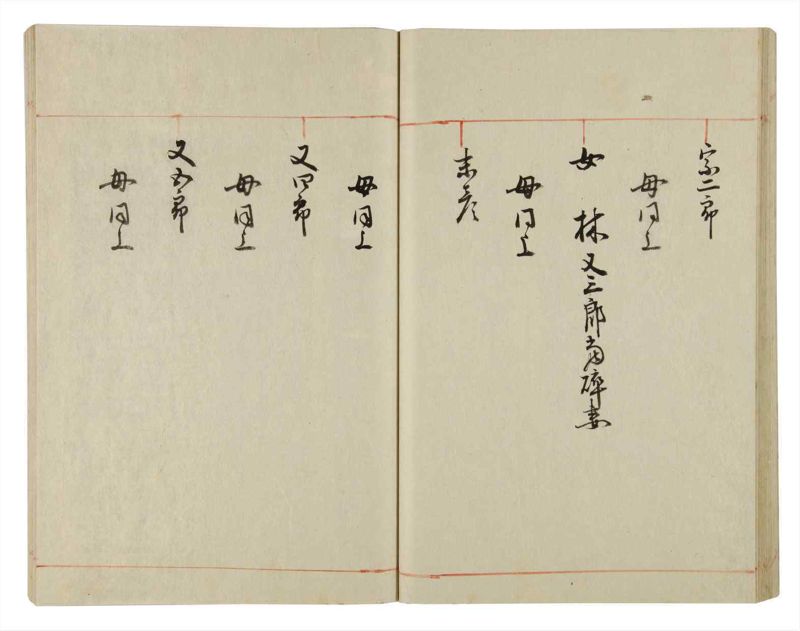 宗二郎
母同上
女 林又三郎高碎妻
母同上
末彦
母同上
又四郎
母同上
又五郎
母同上